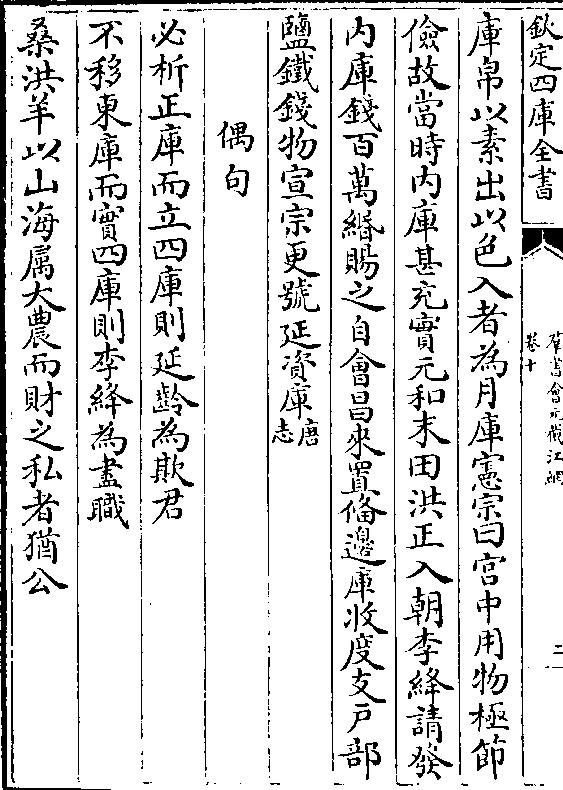 欽定四庫全書
羣書會元截江網
卷十
二
庫帛以素出以色入者為月庫憲宗曰宫中用物極節
儉故當時内庫甚充實元和末田洪正入朝李絳請發
内庫錢百萬緡賜之自會昌來置備邊庫收度支戸部
鹽鐵錢物宣宗更號延資庫唐志
偶句
必析正庫而立四庫則延齡為欺君
不移東庫而實四庫則李絳為盡職
桑洪羊以山海屬大農而財之私者猶公